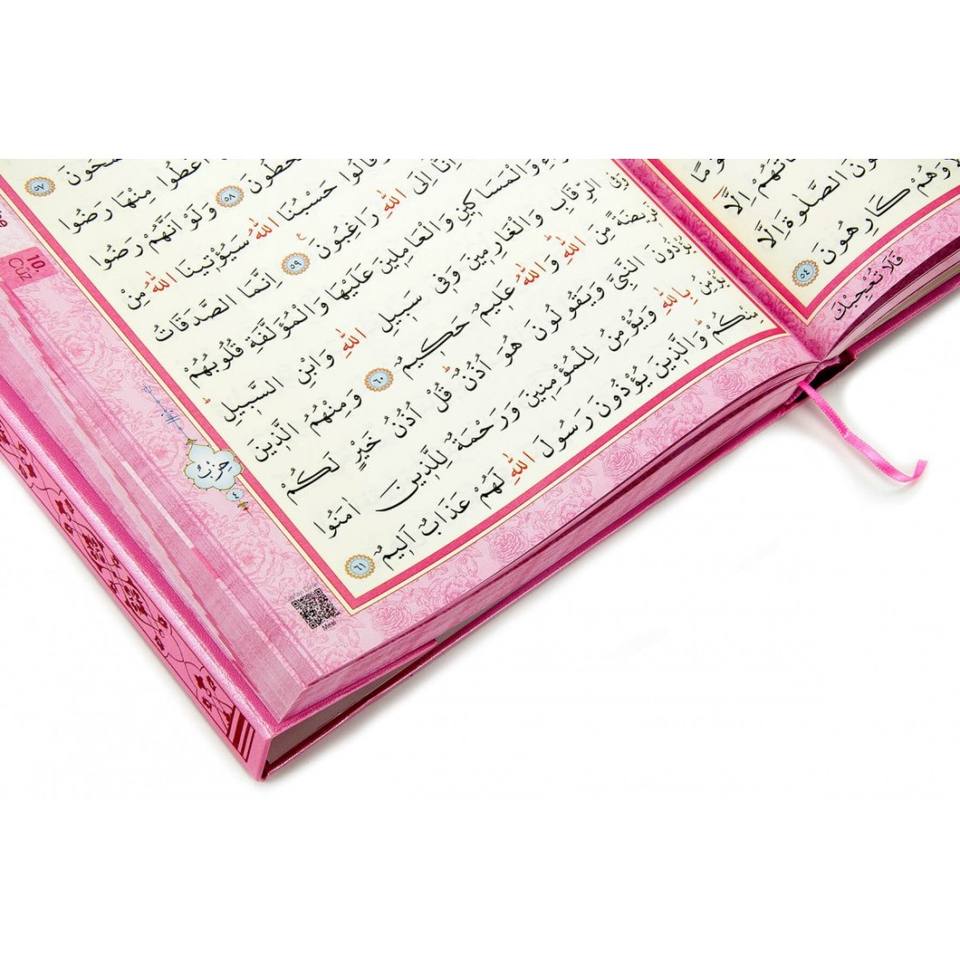 وَمَا
الصَّلٰوةَ اِلَّا
وَهُمْ كَارِهُونَ ٥٤
فَلَا تُعْجِبْكَ
٥٧
اُعْطُوا مِنْهَا رَضُوا
٥٨ وَلَوْ اَنَّهُمْ رَضُوا
وَقَالُوا حَسْبُنَا اللّٰهُ سَيُؤْتِينَا اللّٰهُ مِنْ
اِنَّا اِلَى اللّٰهِ رَاغِبُونَ ٥٩ اِنَّمَا الصَّدَقَاتُ
وَالْمَسَاكِينِ وَالْعَامِلِينَ عَلَيْهَا وَالْمُؤَلَّفَةِ قُلُوبُهُمْ
الرِّقَابِ وَالْغَارِمِينَ وَفِى سَبِيلِ اللّٰهِ وَابْنِ السَّبِيلِ
مِنَ اللّٰهِ وَاللّٰهُ عَلِيمٌ حَكِيمٌ ٦٠ وَمِنْهُمُ الَّذِينَ
يُؤْذُونَ النَّبِىَّ وَيَقُولُونَ هُوَ اُذُنٌ قُلْ اُذُنُ خَيْرٍ لَكُمْ
يُؤْمِنُ بِاللّٰهِ وَيُؤْمِنُ لِلْمُؤْمِنِينَ وَرَحْمَةٌ لِلَّذِينَ اٰمَنُوا
مِنْكُمْ وَالَّذِينَ يُؤْذُونَ رَسُولَ اللّٰهِ لَهُمْ عَذَابٌ اَلِيمٌ ٦١
10.
Cüz
حزب
٤